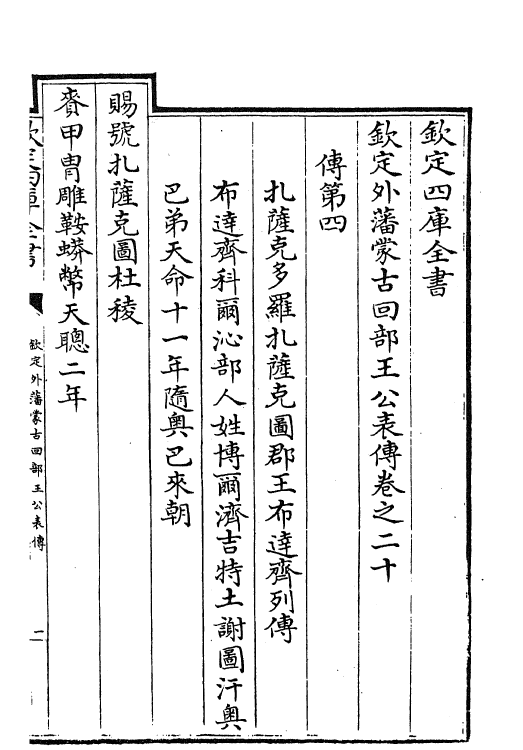 欽定四庫全書
欽定外藩蒙古回部王公表傳卷之二十
傳第四
扎薩克多羅扎薩克圖郡王布達齊列傳
布達齊科爾沁部人姓博爾濟吉特土謝圖汗奧
巴弟天命十一年隨奧巴來朝
賜號扎薩克圖杜稜
賚甲胄雕鞍蟒幣天聰二年
欽定四庫全書
欽定外藩蒙古回部王公表傳
二